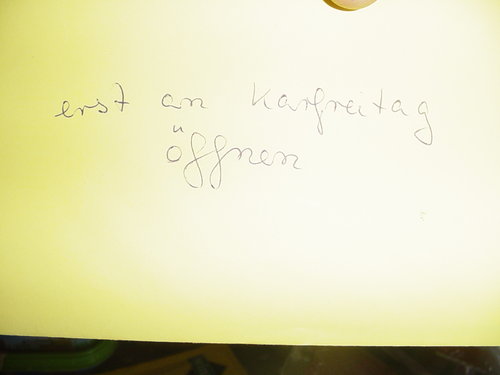 erst an Karfreitag
öffnen